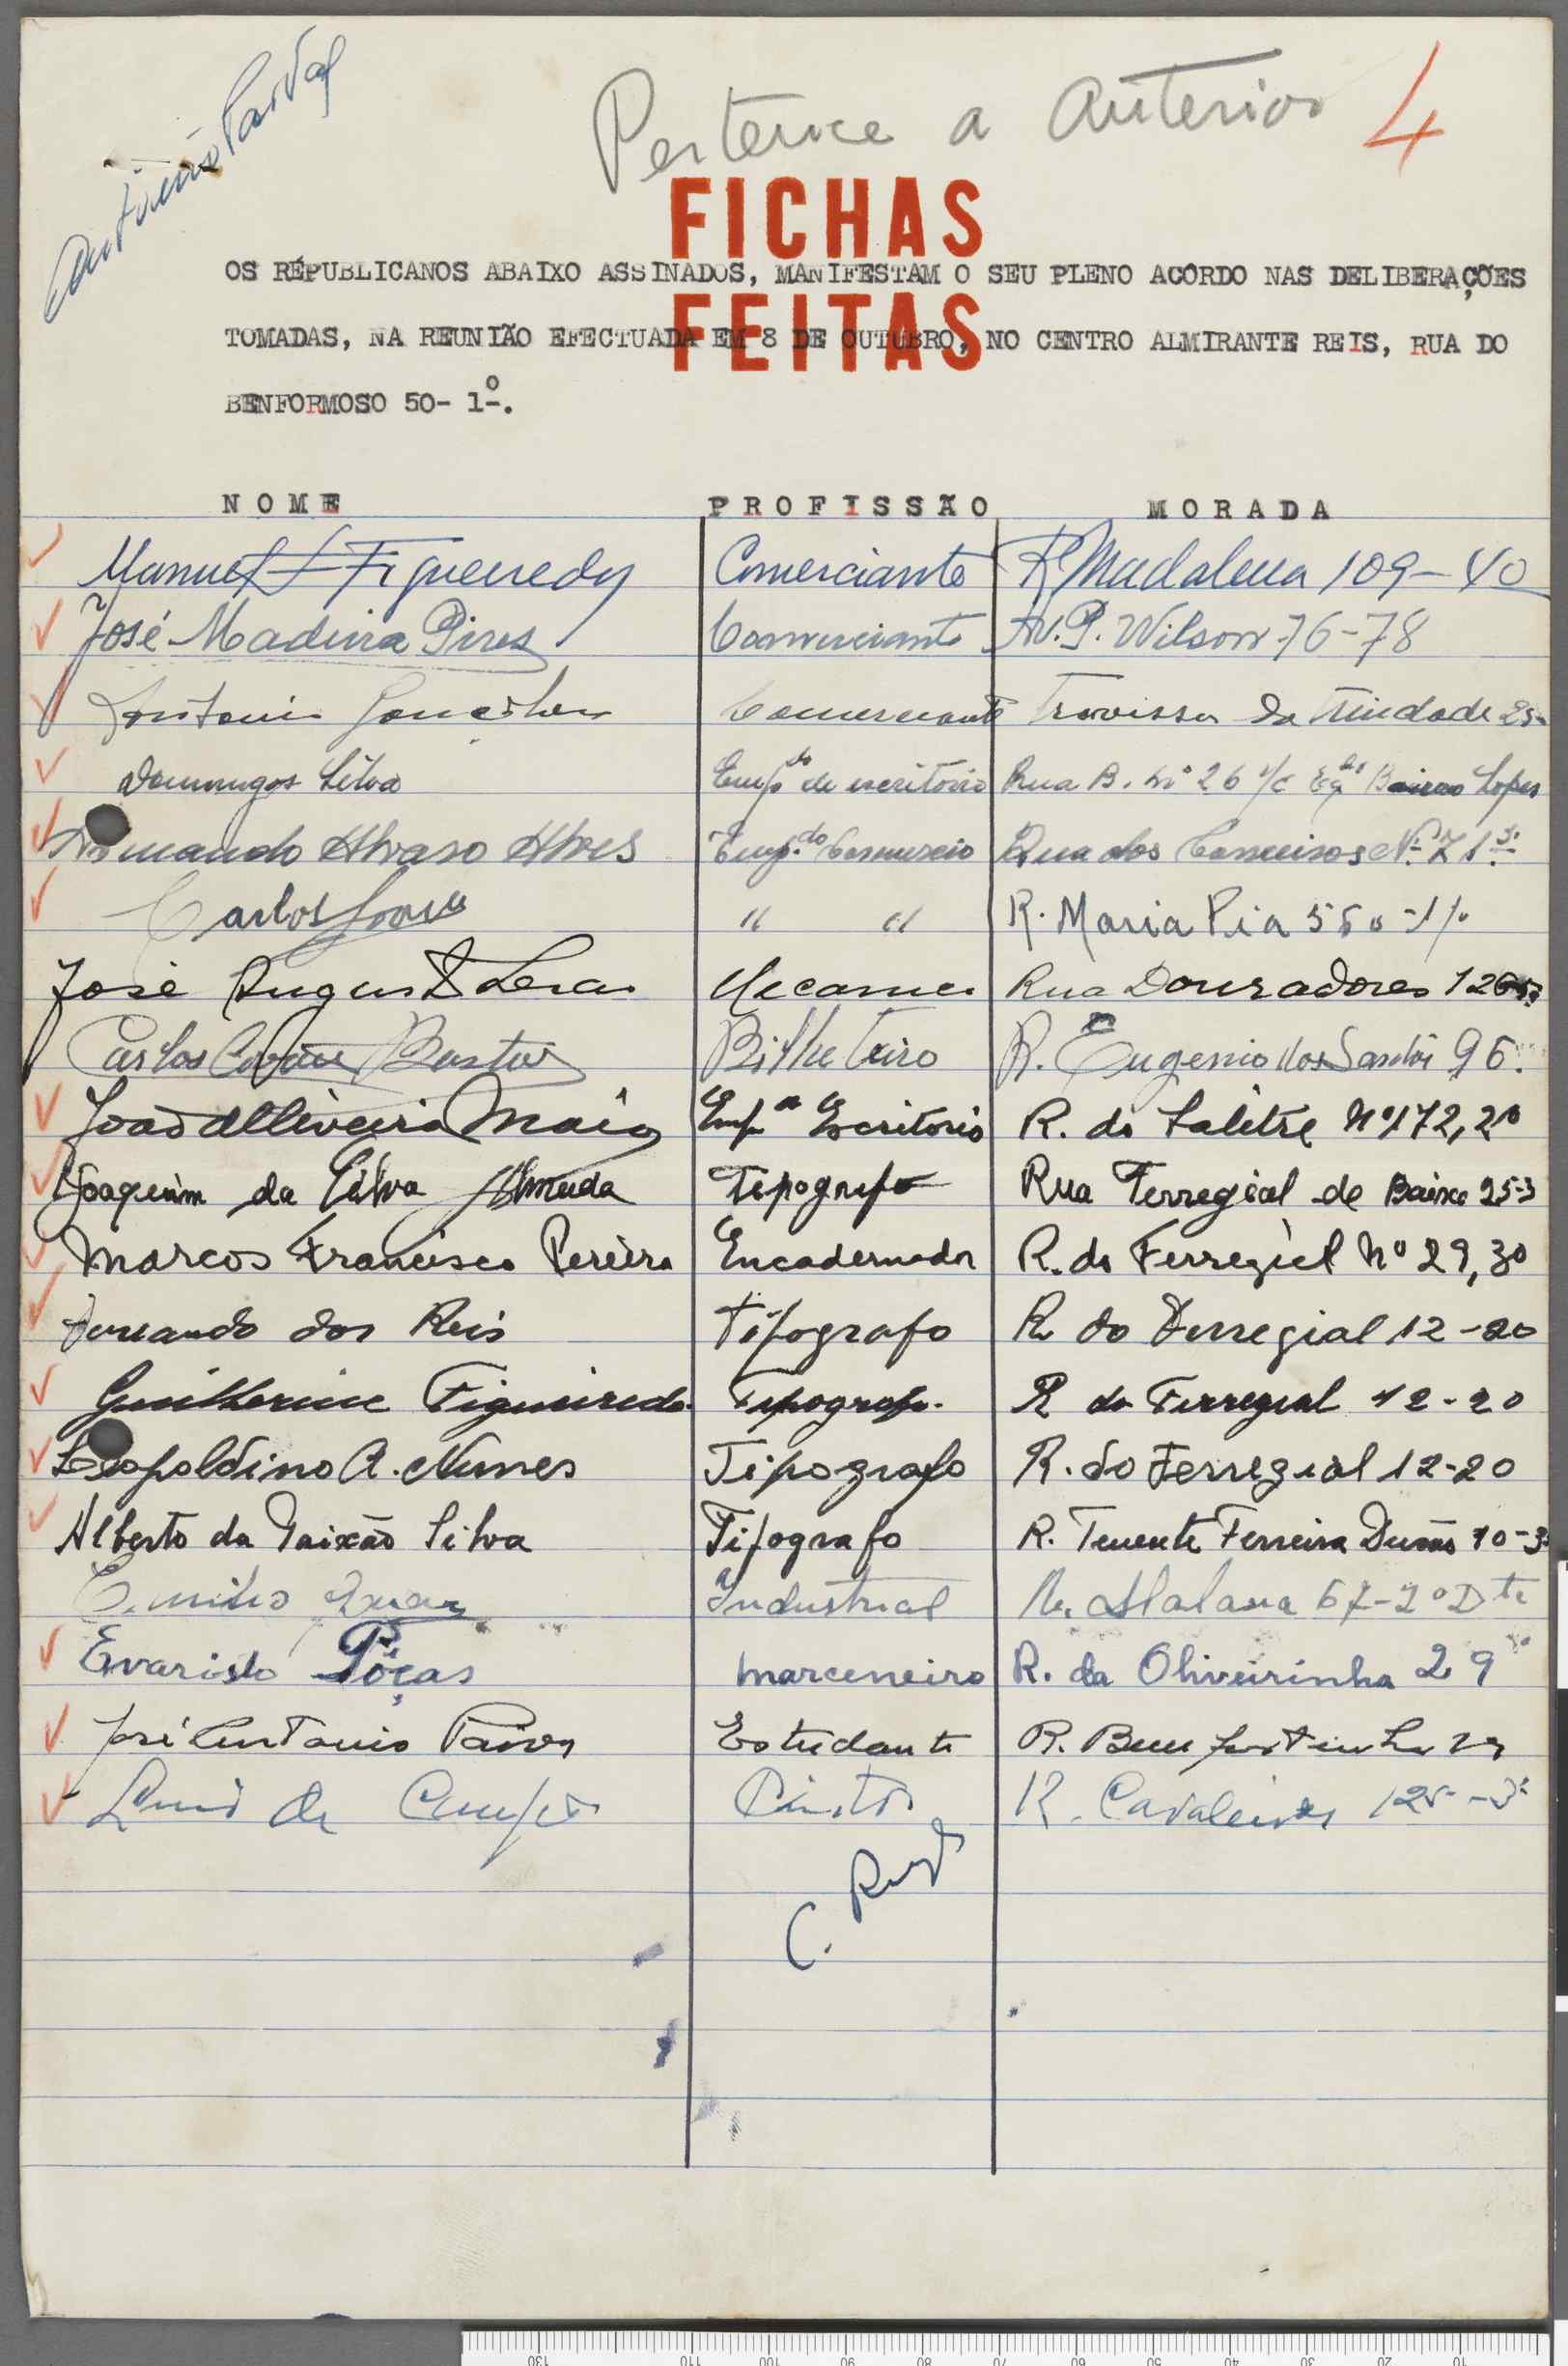 Pertence a anterior 4
FICHAS
OS RÉPUBLICANOS ABAIXO ASSINADOS, MANIFESTAM O SEU PLENO ACORDO NAS DELIBERAÇÕES
FEITAS
TOMADAS, NA REUNIÃO EFECTUADA EM 8 DE OUTUBRO, NO CENTRO ALMIRANTE REIS, RUA DO
BENFORMOSO 50- 1º.
NOME PROFISSÃO MORADA
Manuel Figueiredo Comerciante R Madalena 109-40
José Madeira Pires Comerciante Av. P. Wilson 76-78
Antonio Gonçalves Comerciante Travissa da Trindade 25
Domingos Silva Empdo de escritório Rua B. nº 26 r/c Bairro Lopes
Armando Alvaro Alves Emp.do Comercio Rua dos
Carlos " " R. Maria Pia
José Augusto Rua Douradores
Carlos Bastos Bilheteiro R. Eugenio dos Santos 96
João d'Oliveira Maia Escritorio R. do Salitre Nº 172, 2º
Joaquim da Silva Almeida Tipografo Rua Ferregial de Baixo 25-3
Marcos Francisco Pereira Encadernador R. do Ferregiel Nº 29, 3º
Fernando dos Reis Tipografo R do Ferregial 12-2º
Guilherme Figueiredo Tipografo. R do Ferregial 12-2º
Leopoldino A. Nunes Tipografo R. do Ferregial 12-2º
Alberto da Paixão Silva Tipografo R. Tenente Ferreira Durão 10-3
Industrial 2º Dte
Evaristo Pôças marceneiro R. da Oliveirinha 29
José Antonio Paiva Estudante R.
de Campos R. Cavaleiros 125-3º
C.